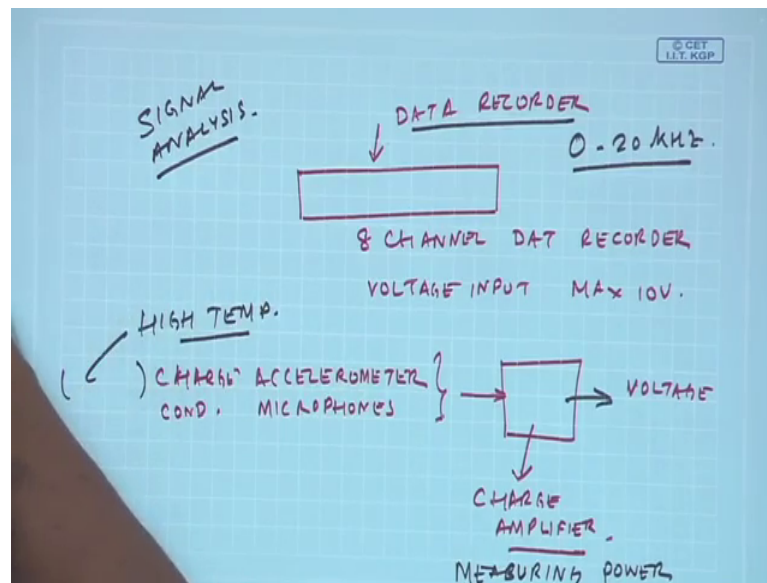 © CET
I.I.T. KGP
SIGNAL
ANALYSIS.
DATA RECORDER
0-20 kHz.
8 CHANNEL DAT RECORDER
VOLTAGE INPUT MAX 10V.
HIGH TEMP.
( ) CHARGE ACCELEROMETER
COND. MICROPHONES
VOLTAGE
CHARGE
AMPLIFIER.
MEASURING POWER